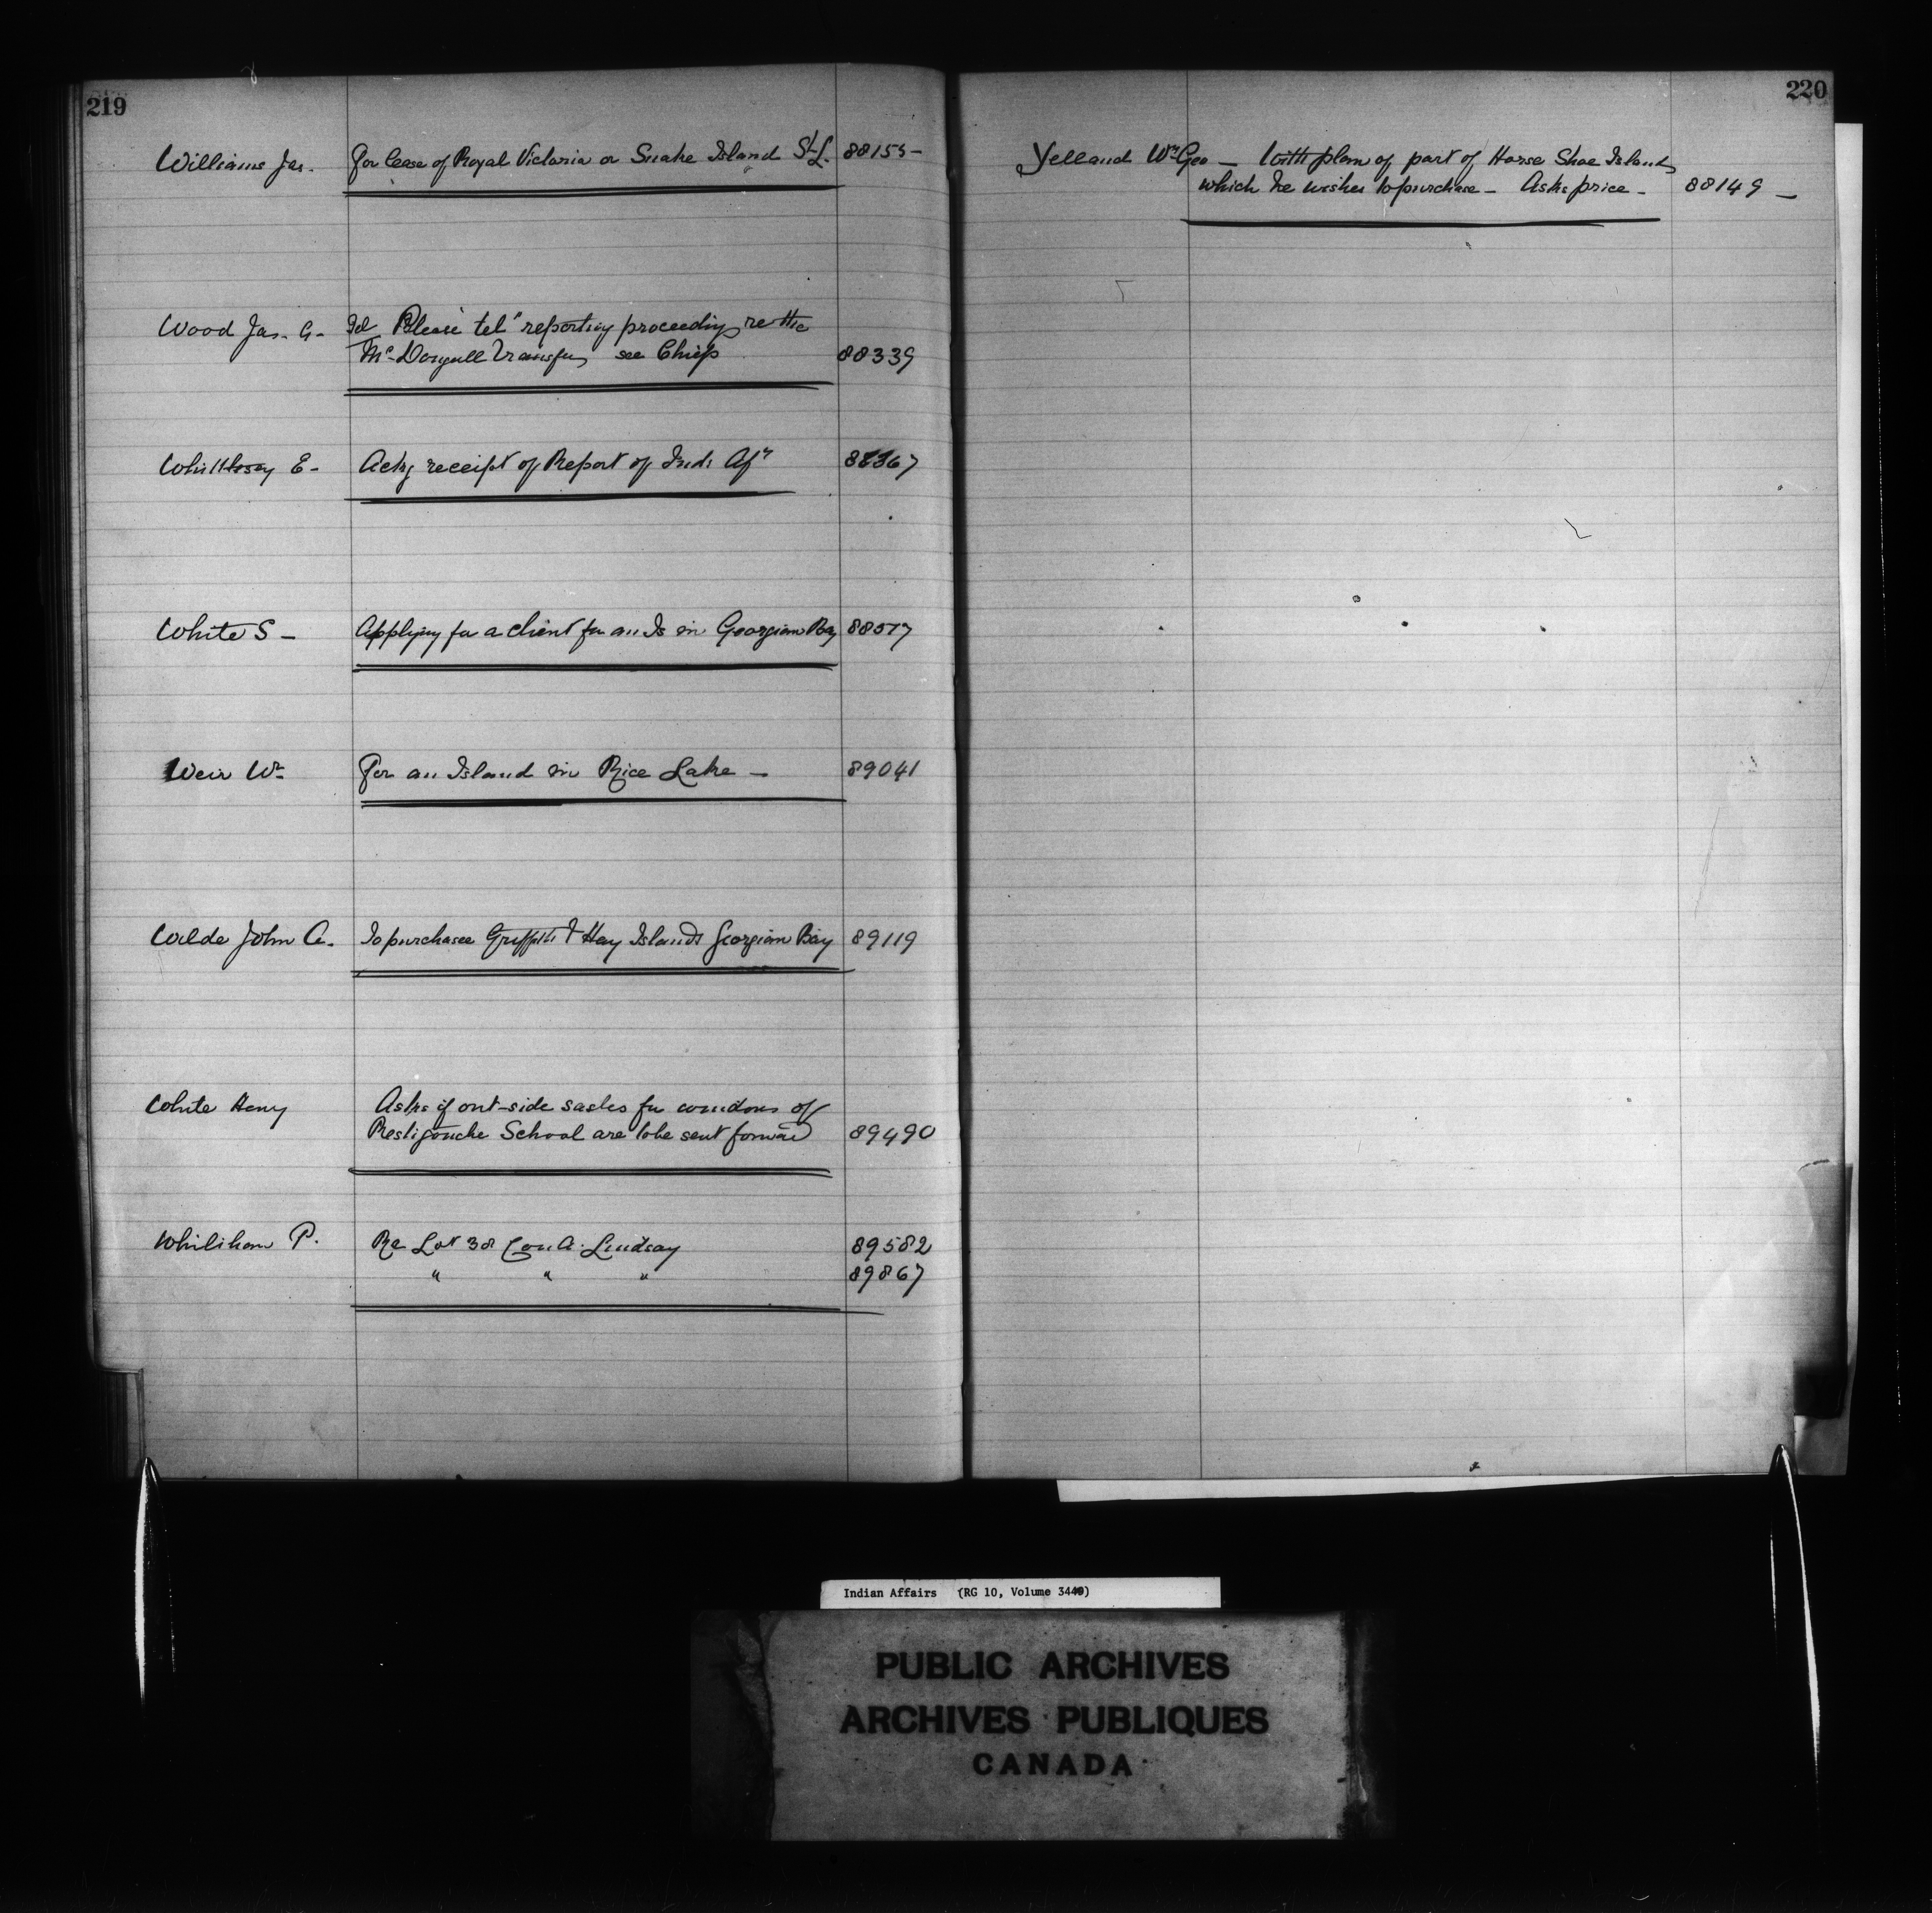 219
Williams Jas. For lease of Royal Victoria or Snake Island St L. 88155
Wood Jas. A. Tel Please tel. reporting proceedings re the
McDougall Transfer see Chiefs 88339
Whittlesey E. Ackg receipt of Report of Inds Afrs 88367
White S Applying for a client for an Is in Georgian Bay 88517
Weir Wm For an Island in Rice Lake 89041
Wilde John A. To purchase Griffith & Hay Islands Georgian Bay 89119
White Henry Asks if out-side sashes for windows of
Restigouche School are to be sent forward 89490
P. Re Lot 38 Con A. Lindsay 89582
" " " 89867
220
Yelland Wm Geo With plan of part of Horse Shoe Island
which he wishes to purchase - Asks price - 88149
Indian Affairs (RG 10, Volume 3449)
PUBLIC ARCHIVES
ARCHIVES PUBLIQUES
CANADA